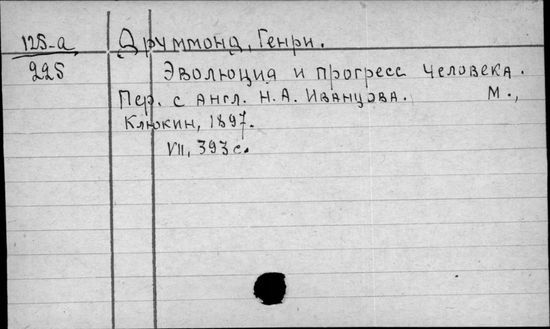 125-а
225
Друммонд, Генри.
Эволюция и прогресс человека.
Пер. с англ. Н.А. Иванцова. М.,
Клюкин, 1897.
VII, 393 с.